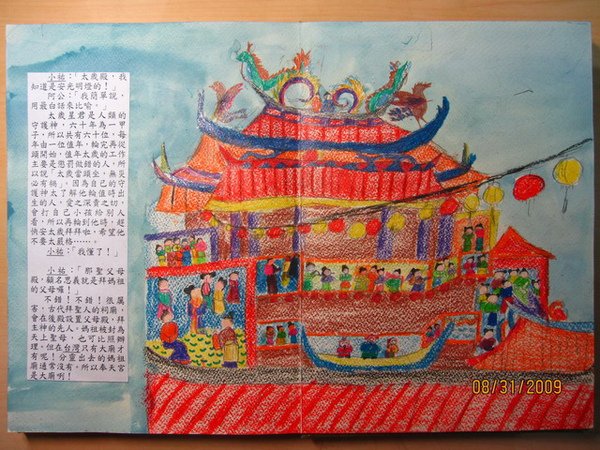 小祐：「太歲殿，我
知道是安光明燈的！」
阿公：「我簡單說，
用最白話來比喻。」
太歲星君是人類的
守護神，六十年為一甲
子，所以共有六十位，每
年由一位值年，輪完再從
頭開始，值年太歲的工作
主要是懲罰做錯的人，所
以說「太歲當頭坐，無災
必有禍」，因為自己的守
護神太了解他輪值時出
生的人，愛之深責之切，
會打自己小孩給別人
看，所以再輪到他時，趕
快安太歲拜拜啦，希望他
不要太嚴格……。
小祐：「我懂了！」
小祐：「那聖父母
殿，顧名思義就是拜媽祖
的父母囉！」
不錯！不錯！很厲
害，古代拜聖人的祠廟，
會在後殿設置父母殿，拜
主神的先人。媽祖被封為
天上聖母，也可比照辦
理。但在台灣只有大廟才
有呢！分靈出去的媽祖
廟通常沒有。所以奉天宮
是大廟啊！
08/31/2009